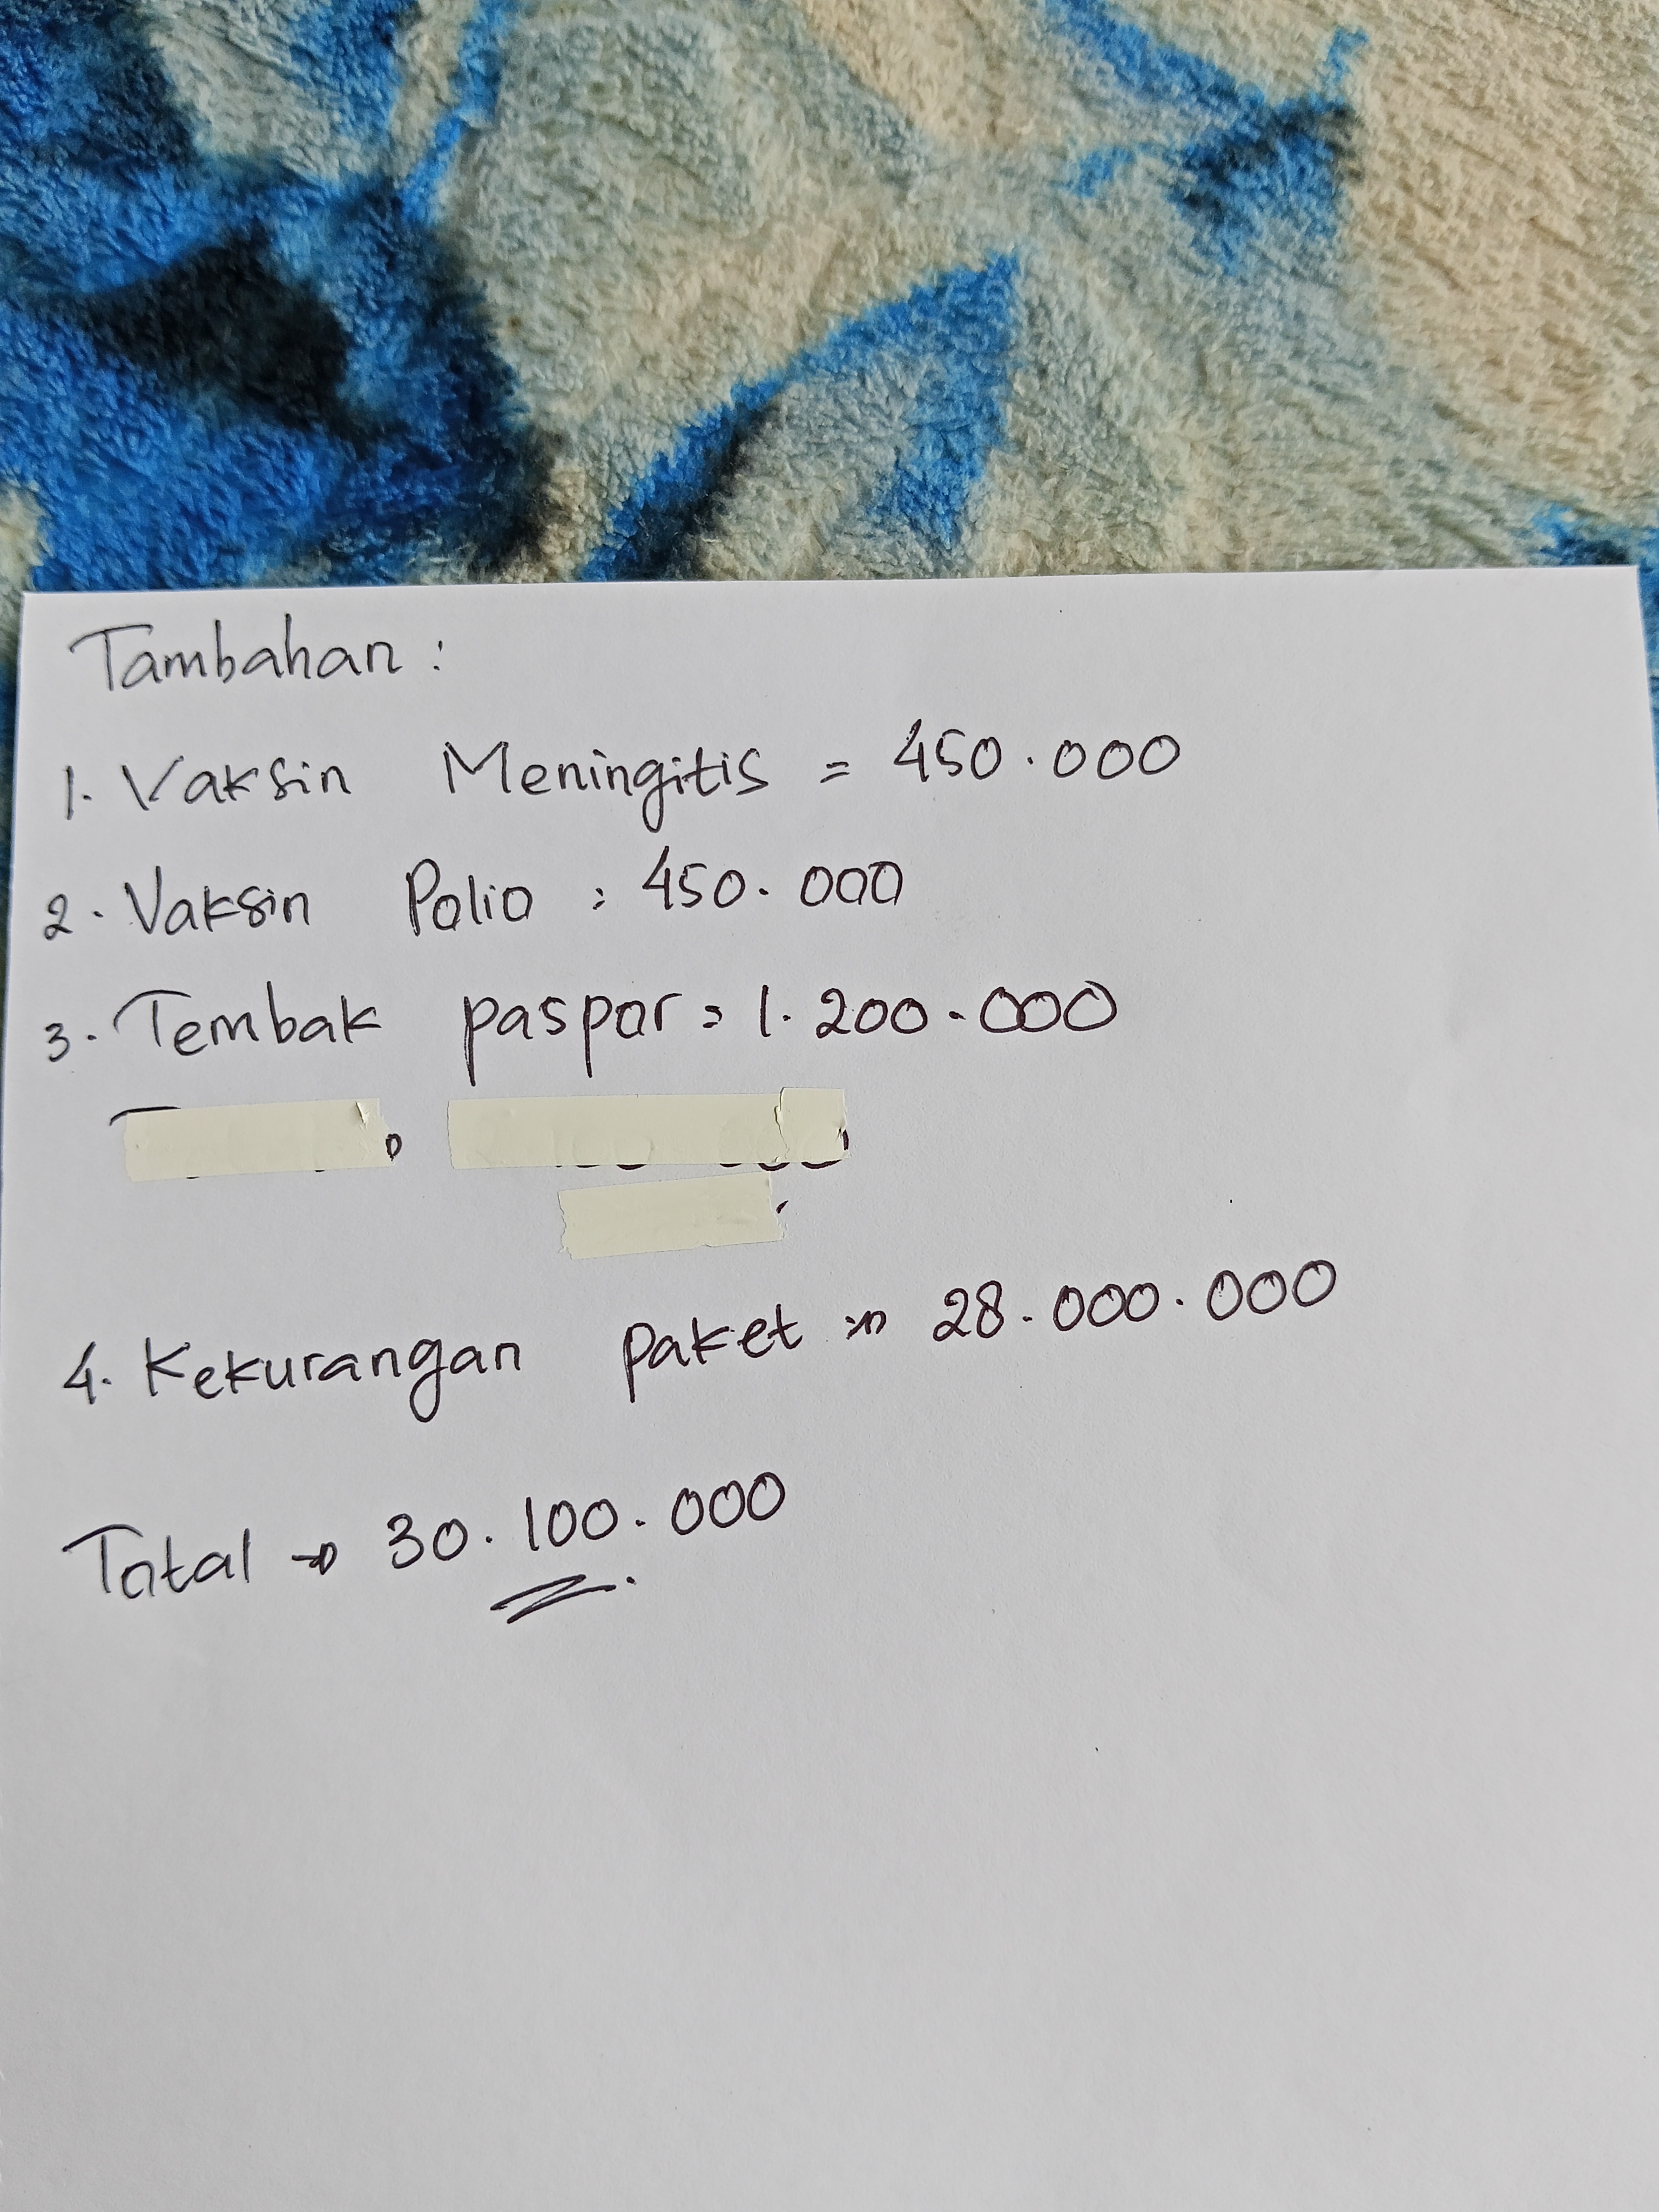 Tambahan :
1. Vaksin Meningitis = 450.000
2. Vaksin Polio : 450.000
3. Tembak paspor = 1.200.000
4. Kekurangan paket => 28.000.000
Total => 30.100.000